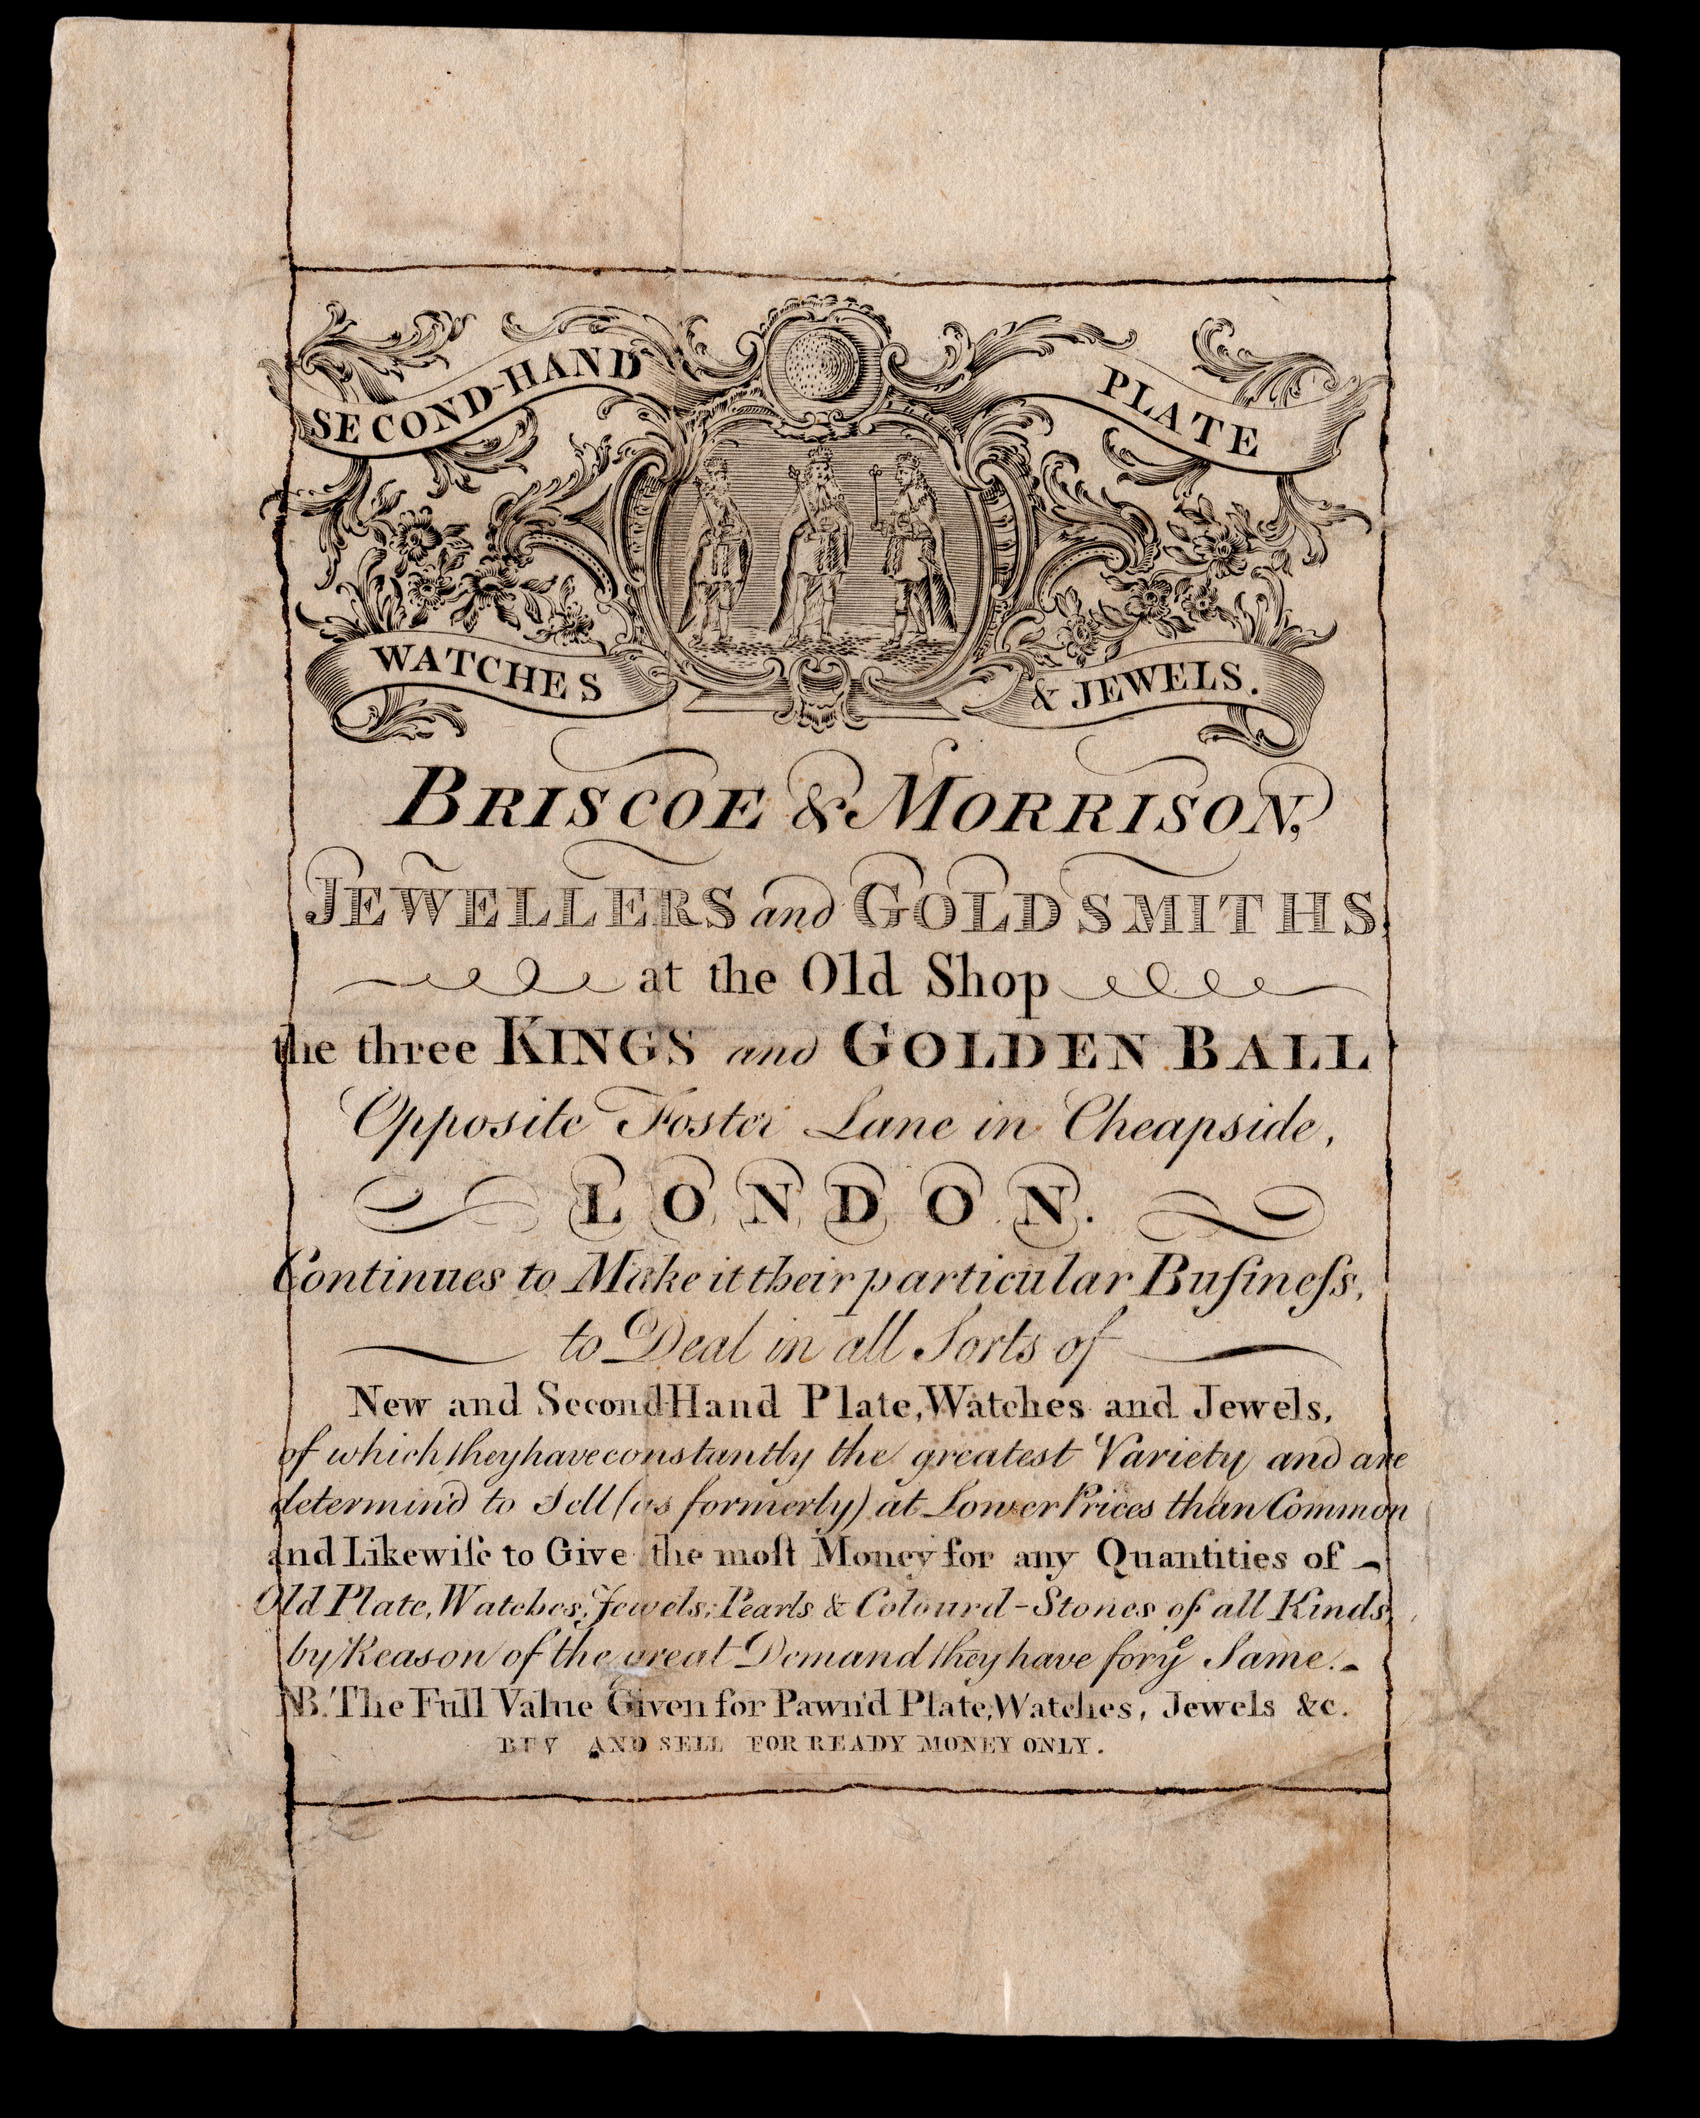 SECOND-HAND
PLATE
WATCHES
& JEWELS.
BRISCOE & MORRISON,
JEWELLERS and GOLDSMITHS,
at the Old Shop
the three KINGS and GOLDEN BALL
Opposite Foster Lane in Cheapside,
LONDON.
Continues to Make it their particular Buſineſs,
to Deal in all Sorts of
New and Second Hand Plate, Watches and Jewels,
of which they have constantly the greatest Variety and are
determin'd to Sell (as formerly) at Lower Prices than Common
and Likewiſe to Give the moſt Money for any Quantities of
Old Plate, Watches, Jewels, Pearls & Colour'd-Stones of all Kinds,
by Reason of the great Demand they have for yᵉ Same.
NB. The Full Value Given for Pawn'd Plate, Watches, Jewels &c.
BUY AND SELL FOR READY MONEY ONLY.